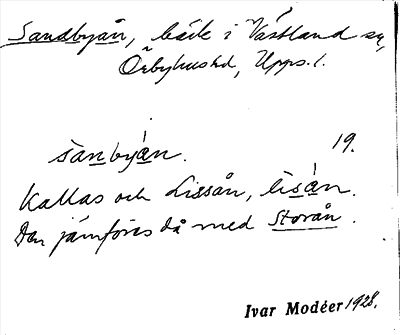 Sandbyån, bäck i Västland sn,
Örbyhus hd, Upps. l.
sanbyån. 19.
Kallas och Lissån, lisån.
Den jämföres då med Storån.
Ivar Modéer 1928.